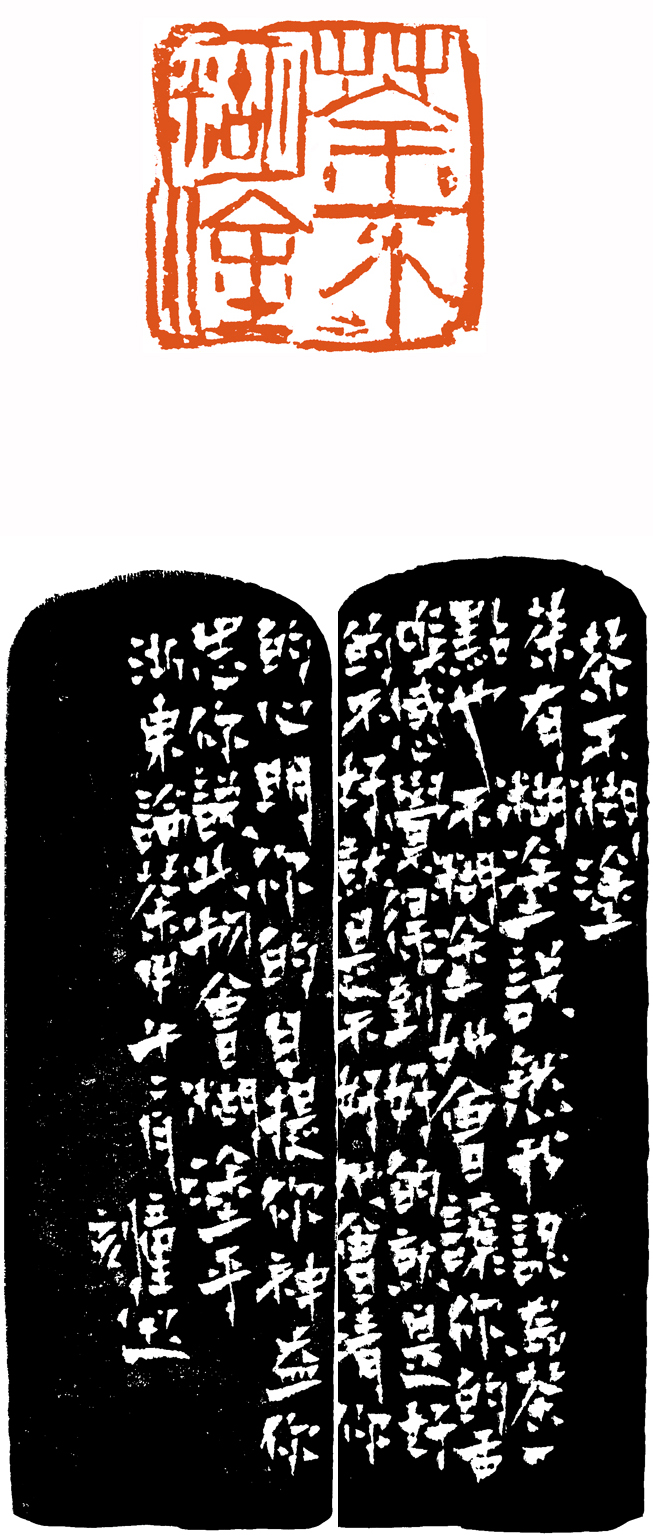 茶不
糊塗
茶不糊塗
茶有糊塗說然我認為茶一
點也不糊塗她會讓你的舌
喉感覺得到好的就是好
的不好就是不好她會清你
的心明你的目提你神益你
思你說此物會糊塗乎
浙東論茶甲午二月
刻